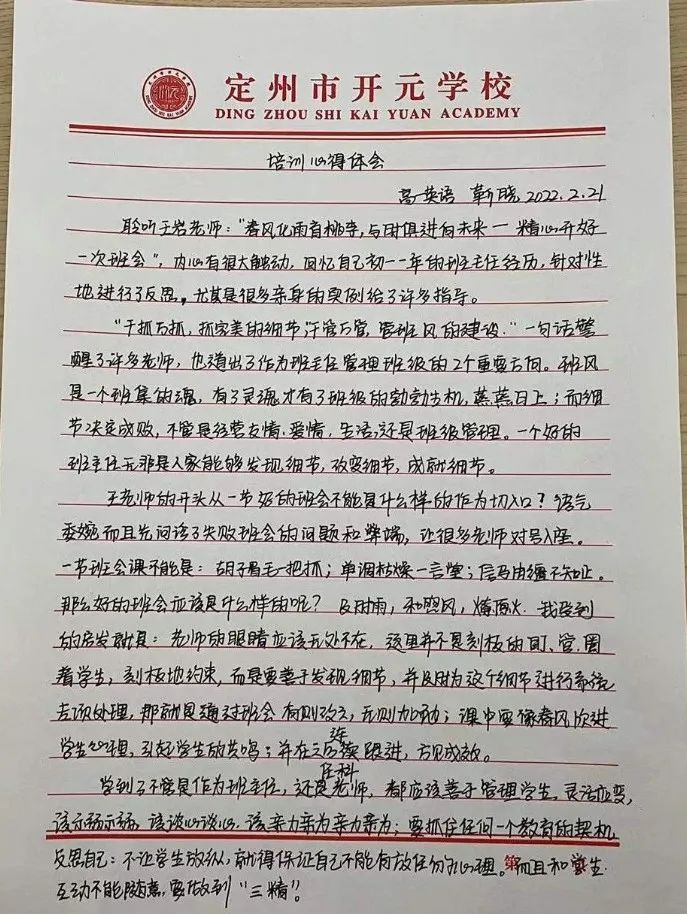 定州市开元学校
DING ZHOU SHI KAI YUAN ACADEMY
培训心得体会
高一英语 靳晓 2022.2.21
聆听王岩老师："春风化雨育桃李，与时俱进向未来—精心开好
一次班会"，内心有很大触动，回忆自己初一一年的班主任经历，针对性
地进行了反思，尤其是很多亲身的实例给了许多指导。
"千抓万抓，抓完美的细节；千管万管，管班风的建设。"一句话警
醒了许多老师，也道出了作为班主任管理班级的2个重要方向。班风
是一个班集的魂，有了灵魂才有了班级的勃勃生机，蒸蒸日上；而细
节决定成败，不管是经营友情、爱情、生活，还是班级管理。一个好的
班主任无非是人家能够发现细节，改变细节，成就细节。
王老师的开头从一节好的班会不能是什么样的作为切入口？语气
委婉而且先问该了失败班会的问题和弊端，让很多老师对号入座。
一节班会课不能是：胡子眉毛一把抓；单调枯燥一言堂；信马由缰不知止。
那么好的班会应该是什么样的呢？及时雨，和煦风，燎原火。我受到
的启发就是：老师的眼睛应该无处不在，这里并不是刻板的盯、管、圈
着学生，刻板地约束，而是要善于发现细节，并及时为这个细节进行系统
专项处理，那就是通过班会有则改之，无则加勉；课中要像春风吹进
学生心理，引起学生的共鸣；并在之后连续跟进，方见成效。
学到了不管是作为班主任，还是任科老师，都应该善于管理学生，灵活应变，
该示弱示弱，该谈心谈心，该亲力亲为亲力亲为；要抓住任何一个教育的契机
反思自己：不让学生放纵，就得保证自己不能有放任勿扰心理。而且和学生
互动不能随意，要做到"三精"。
第